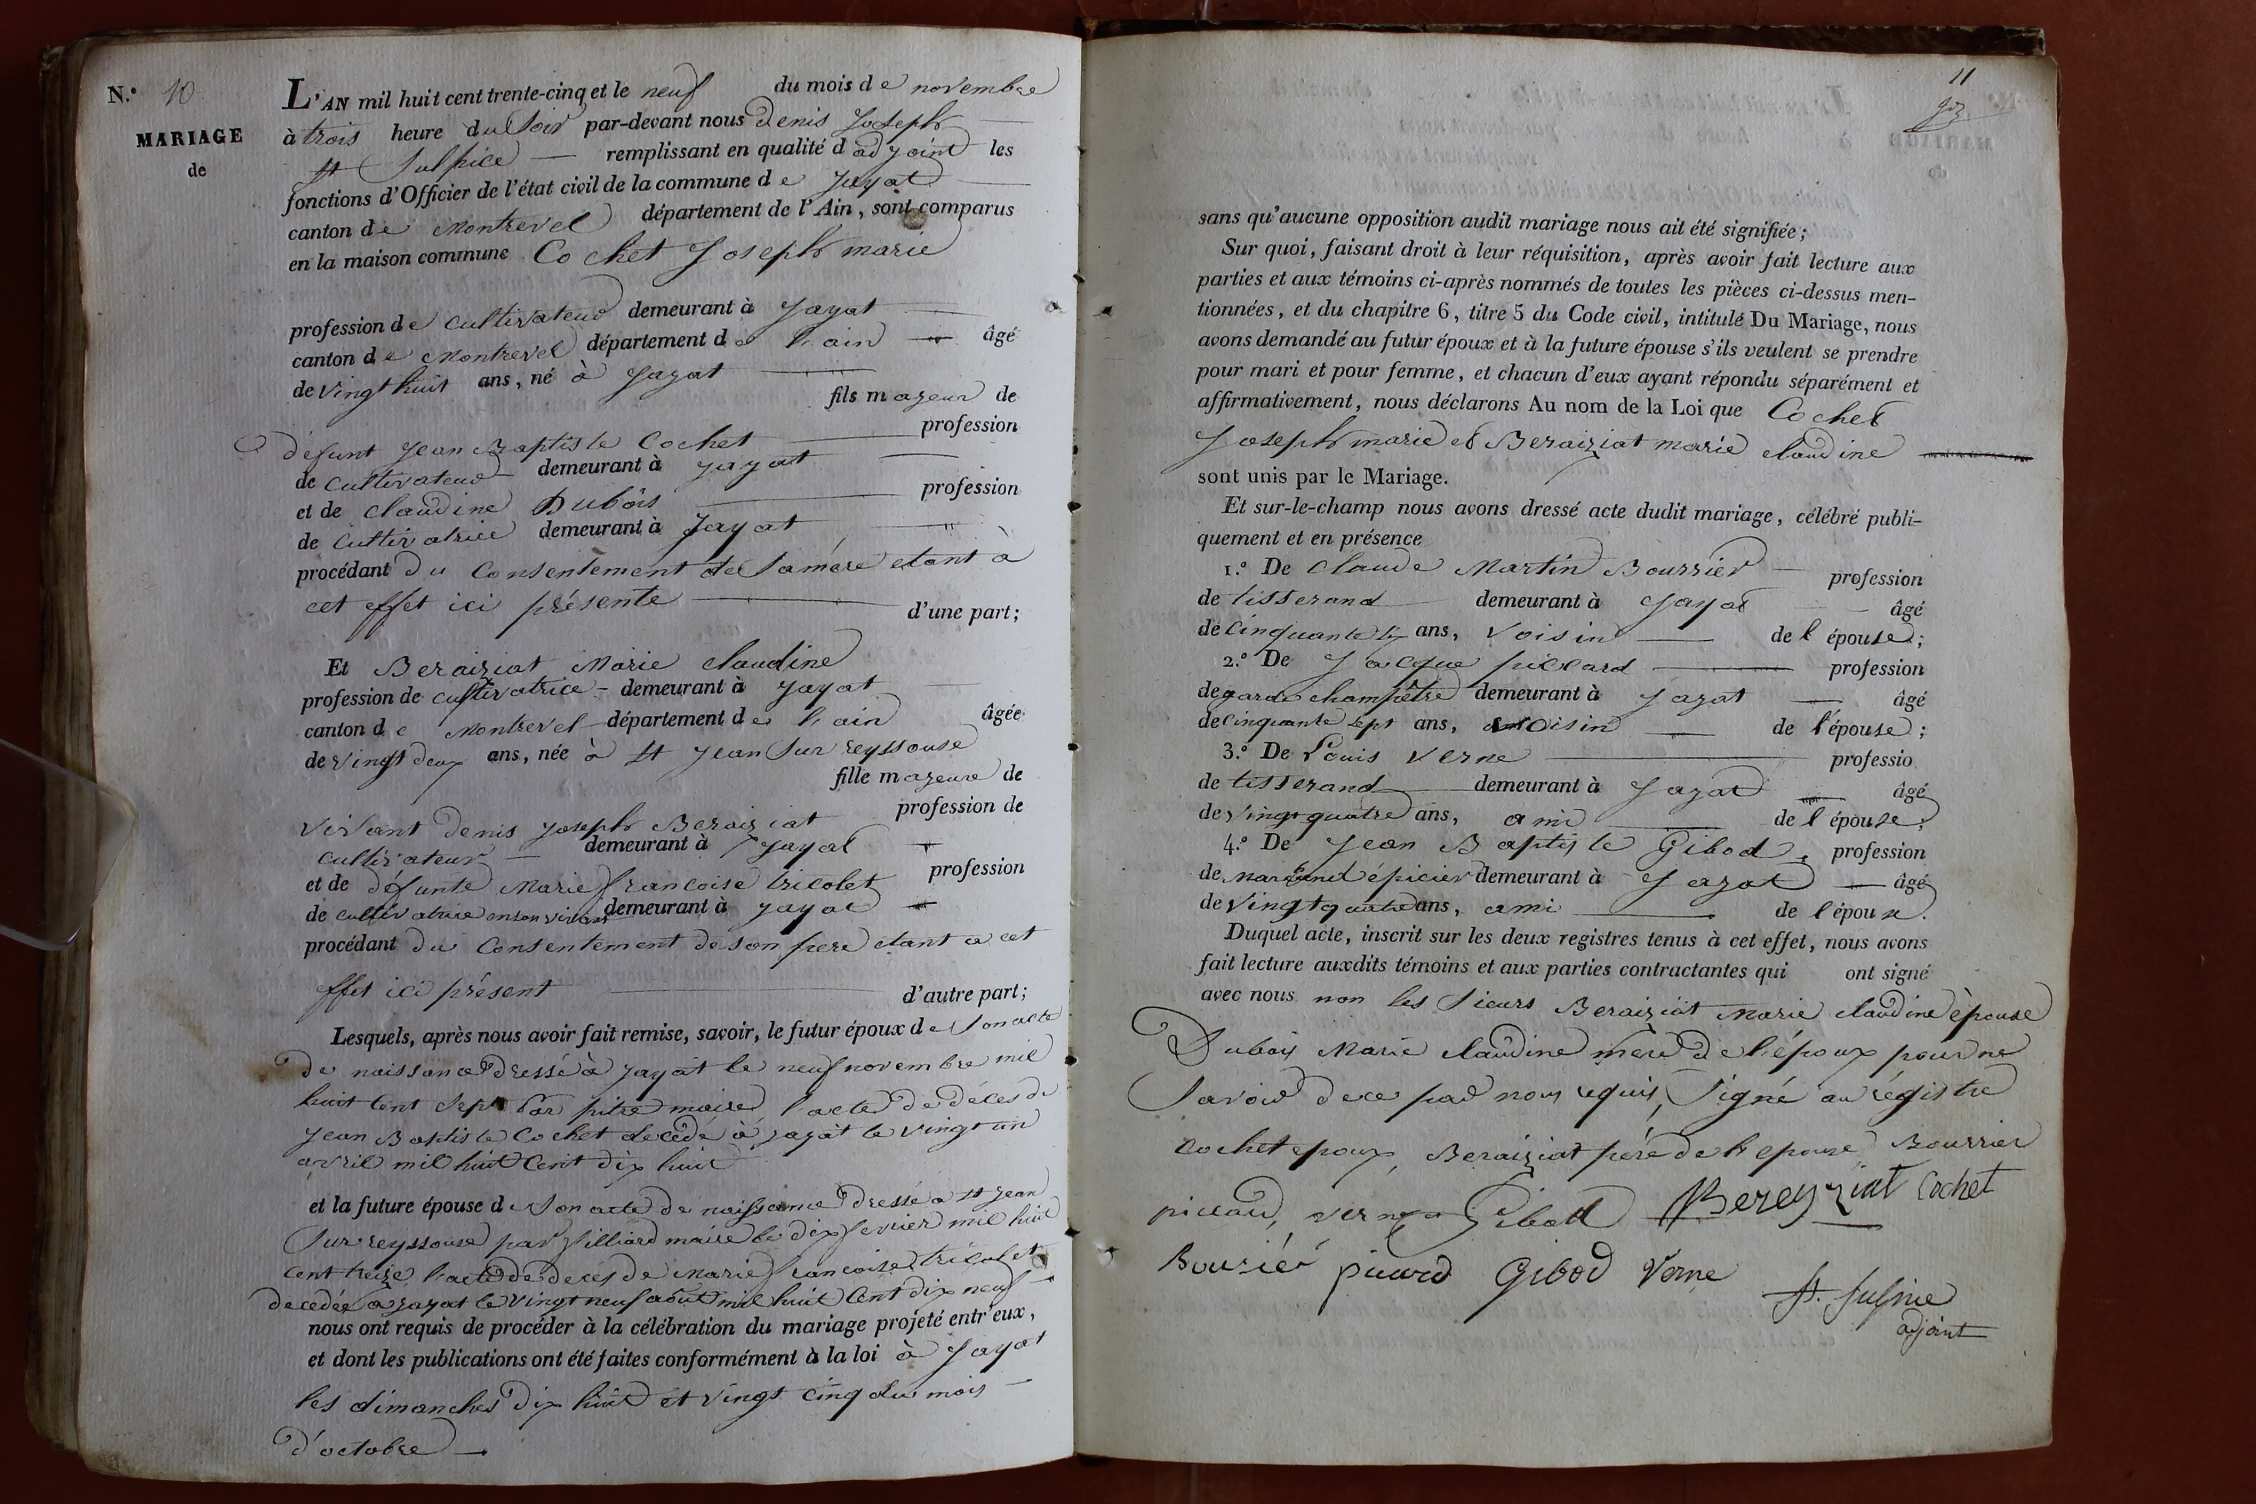 N.° 10
MARIAGE
de
L'AN mil huit cent trente-cinq et le neuf du mois de novembre
à trois heure du Soir par-devant nous Denis Joseph
St Sulpice remplissant en qualité d adjoint les
fonctions d'Officier de l'état civil de la commune de Jayat
canton de Montrevel département de l'Ain, sont comparus
en la maison commune Cochet Joseph marie
profession de cultivateur demeurant à Jayat
canton de Montrevel département de l'ain âgé
de vingt huit ans, né à Jayat
fils majeur de
défunt Jean Baptiste Cochet profession
de cultivateur demeurant à Jayat
et de claudine Dubois profession
de Cultivatrice demeurant à Jayat
procédant du Consentement de Sa mère etant à
cet effet ici présente d'une part;
Et Beraiziat Marie claudine
profession de cultivatrice demeurant à Jayat
canton de Montrevel département de l'ain âgée
de vingt deux ans, née à St Jean Sur reyssouse
fille majeure de
vivant denis joseph Beraiziat profession de
cultivateur demeurant à Jayat
et de défunte Marie francoise tricolet profession
de cultivatrice en son vivant demeurant à Jayat
procédant du Consentement de son pere etant a cet
effet ici présent d'autre part;
Lesquels, après nous avoir fait remise, savoir, le futur époux de Son acte
de naissance dressé à Jayat le neuf novembre mil
huit Cent Sept par pitre maire, l'acte de décès de
Jean Baptiste Cochet decedé à Jayat le vingt un
avril mil huit Cent dix huit
et la future épouse de Son acte de naissance dressé a St Jean
Sur reyssouse par Villiard maire le dix fevrier mil huit
cent treize, l'acte de deces de Marie francoise tricolet
decedée a Jayat le vingt neuf août mil huit Cent dix neuf
nous ont requis de procéder à la célébration du mariage projeté entr'eux,
et dont les publications ont été faites conformément à la loi à Jayat
les dimanches dix huit et vingt cinq du mois
d'octobre
11
sans qu'aucune opposition audit mariage nous ait été signifiée;
Sur quoi, faisant droit à leur réquisition, après avoir fait lecture aux
parties et aux témoins ci-après nommés de toutes les pièces ci-dessus men-
tionnées, et du chapitre 6, titre 5 du Code civil, intitulé Du Mariage, nous
avons demandé au futur époux et à la future épouse s'ils veulent se prendre
pour mari et pour femme, et chacun d'eux ayant répondu séparément et
affirmativement, nous déclarons Au nom de la Loi que Cochet
Joseph marie et Beraiziat marie claudine
sont unis par le Mariage.
Et sur-le-champ nous avons dressé acte dudit mariage, célébré publi-
quement et en présence
1.° De Claude Martin Bourrier profession
de tisserand demeurant à Jayat âgé
de Cinquante ans, voisin de l'épouse;
2.° De Jacque piccard profession
de garde champêtre demeurant à Jayat âgé
de cinquante sept ans, voisin de l'épouse;
3.° De Louis Verne professio
de tisserand demeurant à Jayat âgé
de vingt quatre ans, ami de l'épouse;
4.° De Jean Baptiste Gibod, profession
de marchand épicier demeurant à Jayat âgé
de vingt quatre ans, ami de l'épouse.
Duquel acte, inscrit sur les deux registres tenus à cet effet, nous avons
fait lecture auxdits témoins et aux parties contractantes qui ont signé
avec nous non les Sieurs Beraiziat Marie claudine épouse
Dubois Marie claudine mère de l'époux pour ne
Savoir de ce par nous requis, Signé au régistre
Cochet epoux, Beraiziat père de l'epouse Bourrier
piccard, verne Gibod Bereyziat Cochet
Bourier picard Gibod Verne
St. Sulpice
adjoint